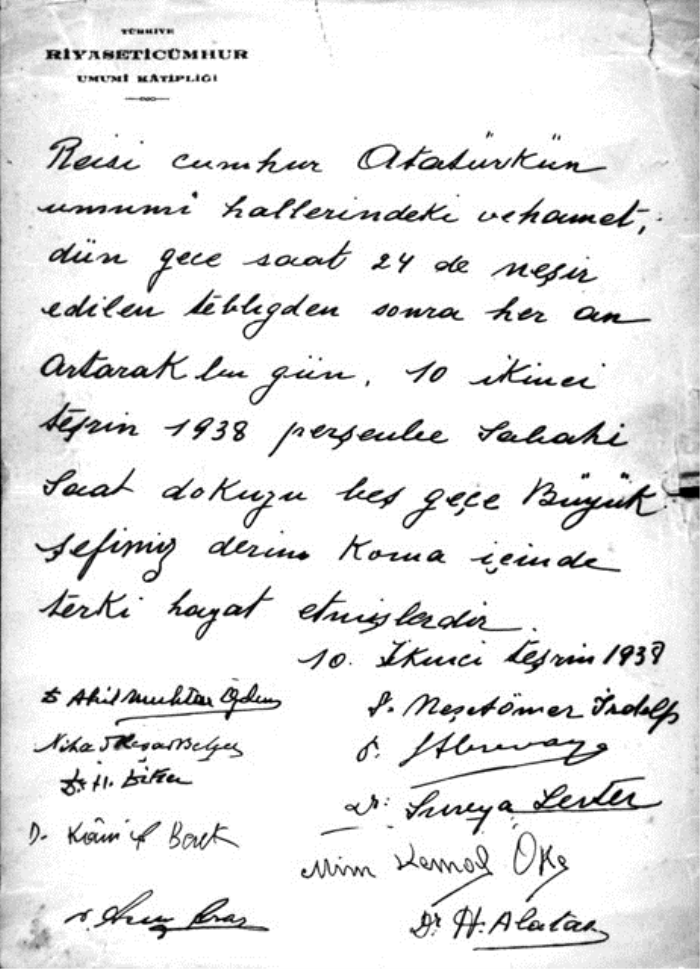 TÜRKİYE
RİYASETİCÜMHUR
UMUMİ KÂTİPLİĞİ
Reisi cumhur Atatürkün
umumî hallerindeki vehamet,
dün gece saat 24 de neşir
edilen tebligden sonra her an
artarak bu gün, 10 ikinci
teşrin 1938 perşenbe sabahi
saat dokuzu beş geçe Büyük
şefimiz derin koma içinde
terki hayat etmişlerdir.
10. İkinci teşrin 1938
Akil Muhtar Özden
Neşetömer İrdelp
Nihad Reşad Belger
Dr. H. Diker
Dr: Süreya Serter
D. Kâmil Berk
Mim Kemal Öke
Dr H. Alatas